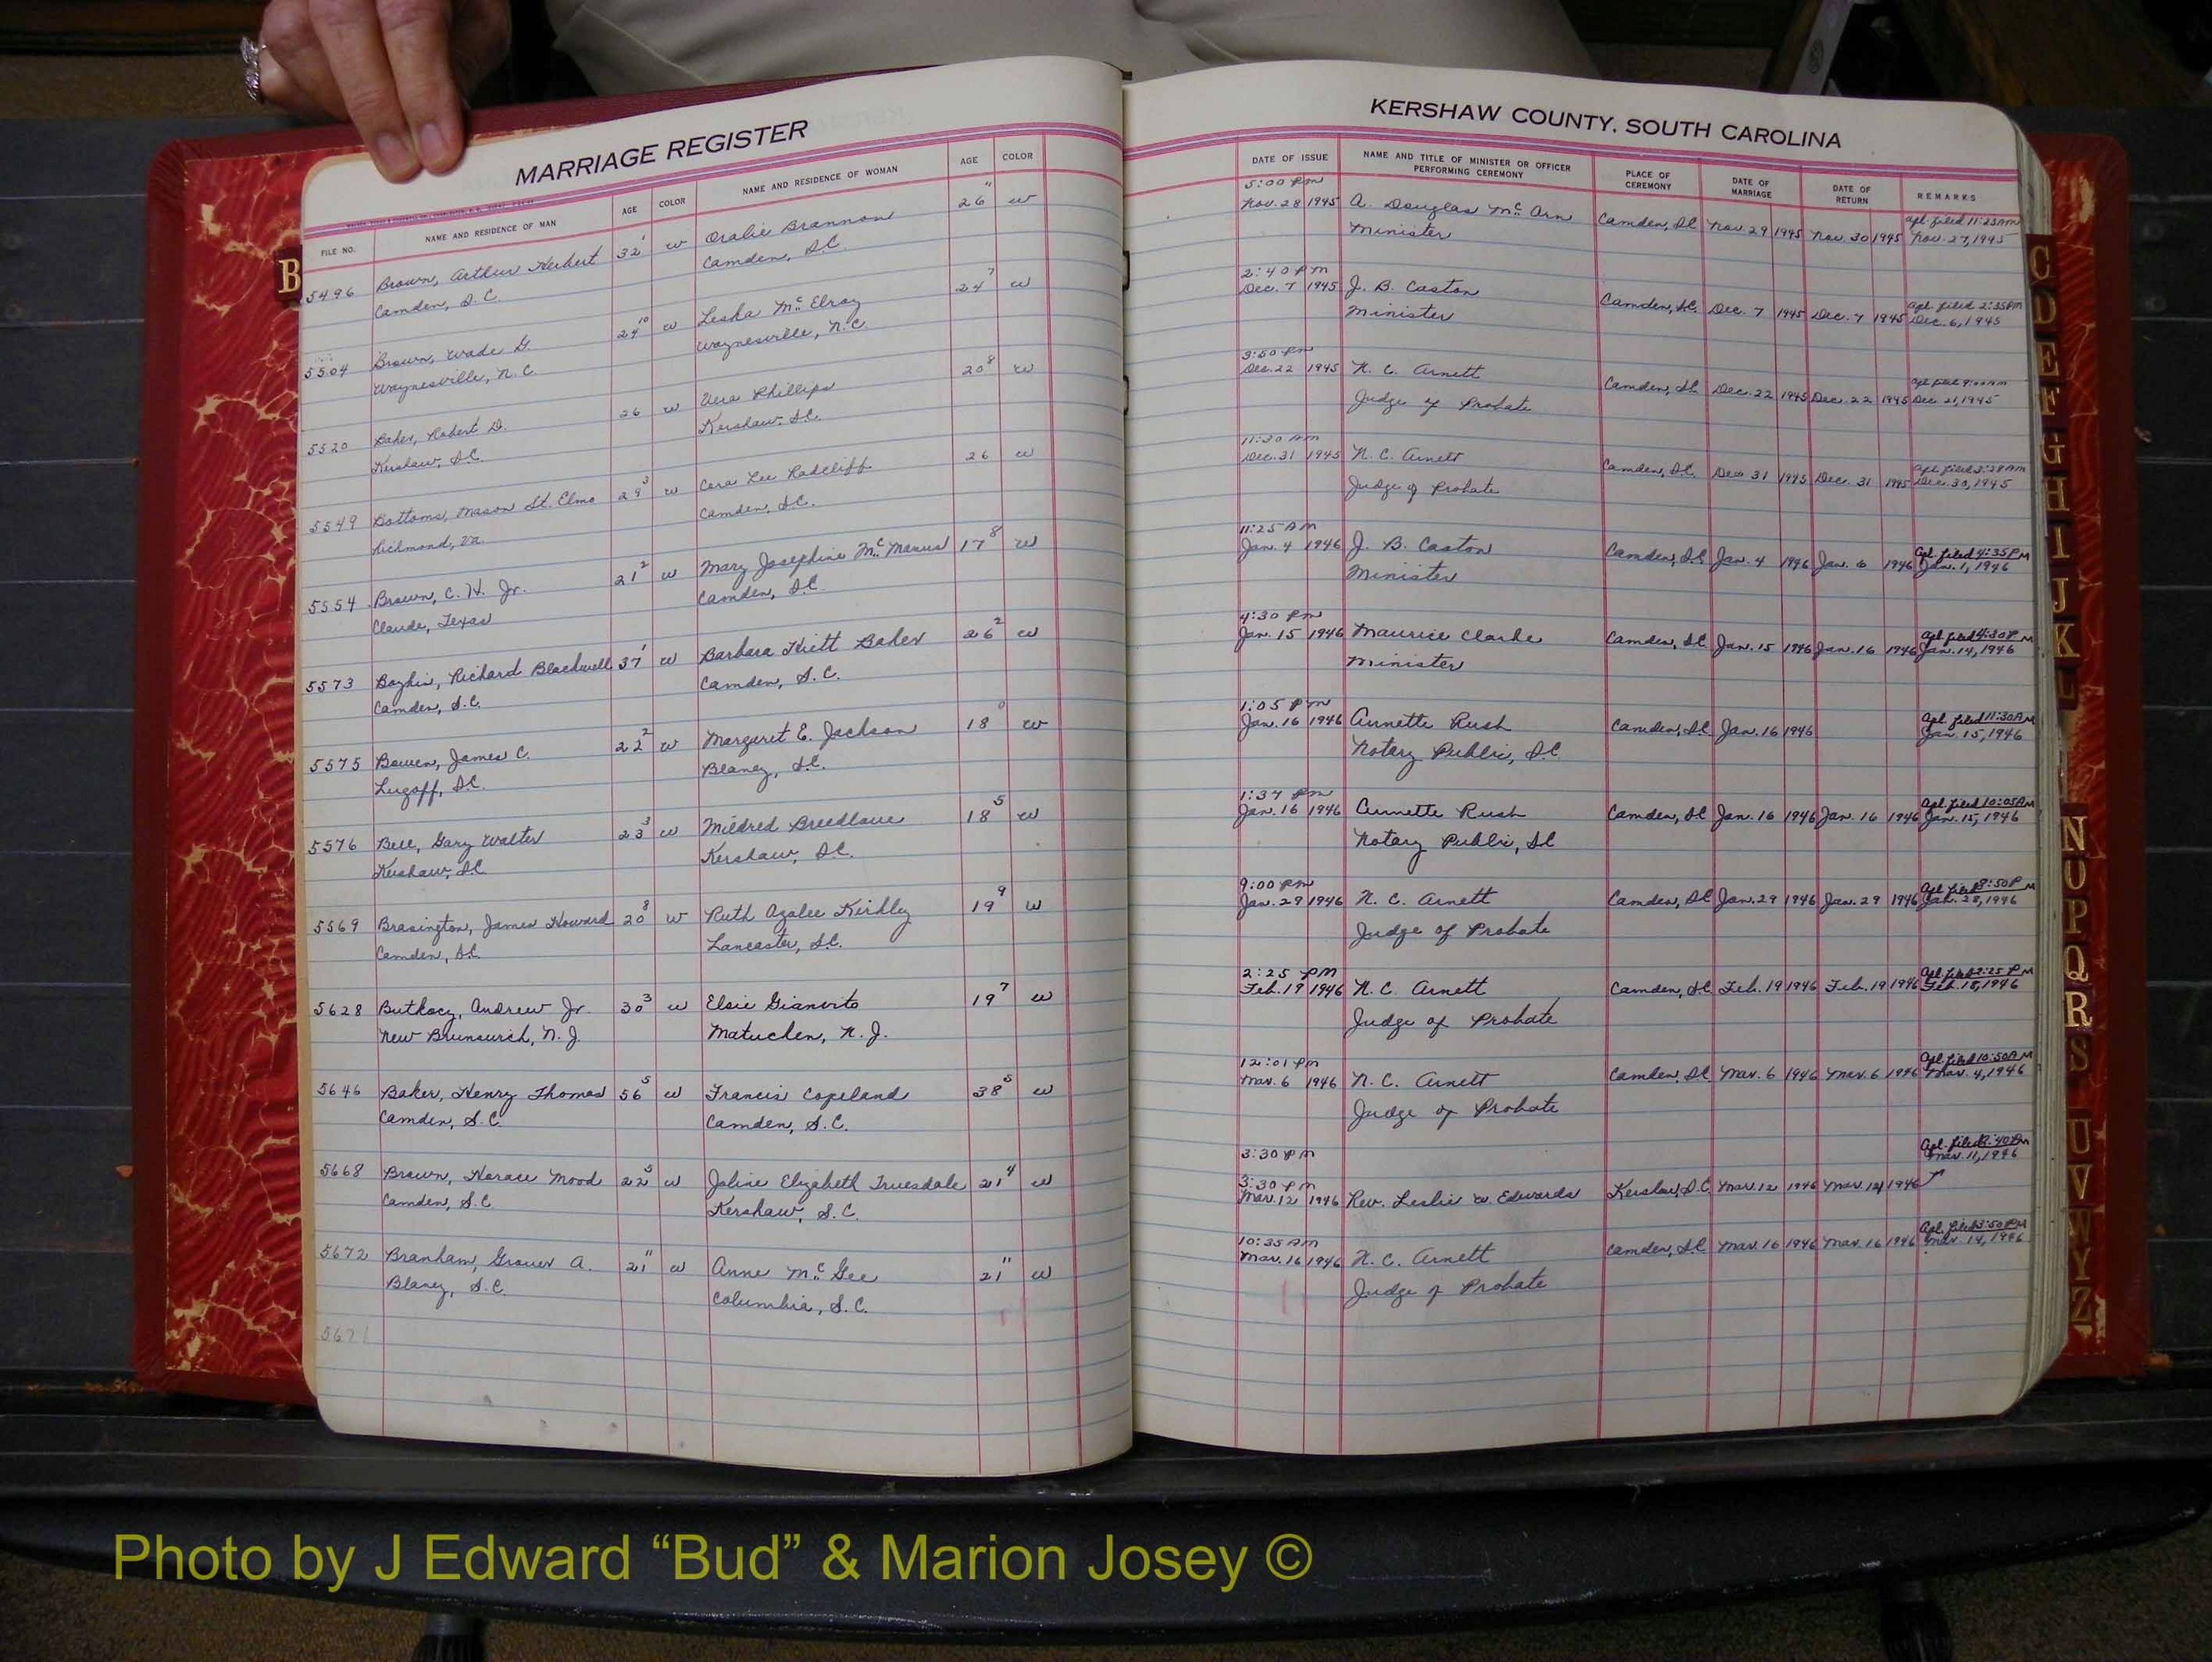 MARRIAGE REGISTER
FILE NO. NAME AND RESIDENCE OF MAN AGE COLOR NAME AND RESIDENCE OF WOMAN AGE COLOR
B
5496 Brown, Arthur Herbert 32 1 w Oralie Brannon 26 11 w
Camden, S.C. Camden, S.C.
5504 Brown, Wade G. 24 10 w Leska McElroy 24 7 w
Waynesville, N.C. Waynesville, N.C.
5520 Baker, Robert D. 26 w Vera Phillips 20 8 w
Kershaw, S.C. Kershaw, S.C.
5549 Bottoms, Mason St. Elmo 29 3 w Cora Lee Radcliff 26 w
Richmond, Va. Camden, S.C.
5554 Brown, C. H. Jr. 21 2 w Mary Josephine McManus 17 8 w
Claude, Texas Camden, S.C.
5573 Boykin, Richard Blackwell 37 1 w Barbara Hiett Baker 26 2 w
Camden, S.C. Camden, S.C.
5575 Bowen, James C. 22 2 w Margaret E. Jackson 18 0 w
Lugoff, S.C. Blaney, S.C.
5576 Bell, Gary Walter 23 3 w Mildred Breedlove 18 5 w
Kershaw, S.C. Kershaw, S.C.
5569 Brasington, James Howard 20 8 w Ruth Azalee Kirkley 19 9 w
Camden, S.C. Lancaster, S.C.
5628 Buthocy, Andrew Jr. 30 3 w Elsie Gianvito 19 7 w
New Brunswick, N.J. Matuchen, N.J.
5646 Baker, Henry Thomas 56 5 w Francis Copeland 38 5 w
Camden, S.C. Camden, S.C.
5668 Brown, Horace Mood 22 5 w Joline Elizabeth Truesdale 21 4 w
Camden, S.C. Kershaw, S.C.
5672 Branham, Grover A. 21 11 w Anne McGee 21 11 w
Blaney, S.C. Columbia, S.C.
KERSHAW COUNTY, SOUTH CAROLINA
DATE OF ISSUE NAME AND TITLE OF MINISTER OR OFFICER PERFORMING CEREMONY PLACE OF CEREMONY DATE OF MARRIAGE DATE OF RETURN REMARKS
5:00 PM apl. filed 11:25 AM
Nov. 28 1945 A. Douglas McArn Camden, SC Nov. 29 1945 Nov. 30 1945 Nov. 27, 1945
Minister
2:40 PM apl. filed 2:35 PM
Dec. 7 1945 J. B. Caston Camden, SC. Dec. 7 1945 Dec. 7 1945 Dec. 6, 1945
Minister
3:50 PM apl. filed 9:00 AM
Dec. 22 1945 N. C. Arnett Camden, SC Dec. 22 1945 Dec. 22 1945 Dec. 21, 1945
Judge of Probate
11:30 AM apl. filed 3:28 AM
Dec. 31 1945 N. C. Arnett Camden, S.C. Dec. 31 1945 Dec. 31 1945 Dec. 30, 1945
Judge of Probate
11:25 AM Apl. filed 4:35 PM
Jan. 4 1946 J. B. Caston Camden, SC Jan. 4 1946 Jan. 6 1946 Jan. 1, 1946
Minister
4:30 PM Apl. filed 4:30 PM
Jan. 15 1946 Maurice Clarke Camden, SC Jan. 15 1946 Jan. 16 1946 Jan. 14, 1946
Minister
1:05 PM Apl. filed 11:30 AM
Jan. 16 1946 Annette Rush Camden, SC Jan. 16 1946 Jan. 15, 1946
Notary Public, SC
1:37 PM Apl. filed 10:05 AM
Jan. 16 1946 Annette Rush Camden, SC Jan. 16 1946 Jan. 16 1946 Jan. 15, 1946
Notary Public, SC
9:00 PM Apl. filed 8:50 P
Jan. 29 1946 N. C. Arnett Camden, SC Jan. 29 1946 Jan. 29 1946 Jan. 28, 1946
Judge of Probate
2:25 PM Apl. filed 2:25 PM
Feb. 19 1946 N. C. Arnett Camden, SC Feb. 19 1946 Feb. 19 1946 Feb. 18, 1946
Judge of Probate
12:01 PM Apl. filed 10:50 AM
Mar. 6 1946 N. C. Arnett Camden, SC Mar. 6 1946 Mar. 6 1946 Mar. 4, 1946
Judge of Probate
3:30 PM Mar. 11, 1946
3:30 PM
Mar. 12 1946 Rev. Leslie W. Edwards Kershaw, S.C. Mar. 12 1946 Mar. 12 1946
10:35 AM Apl. filed 3:50 PM
Mar. 16 1946 N. C. Arnett Camden, SC Mar. 16 1946 Mar. 16 1946 Mar. 14, 1946
Judge of Probate
C
D
E
F
G
H
I
J
K
L
N
O
P
Q
R
S
U
V
W
Y
Z
Photo by J Edward “Bud” & Marion Josey ©